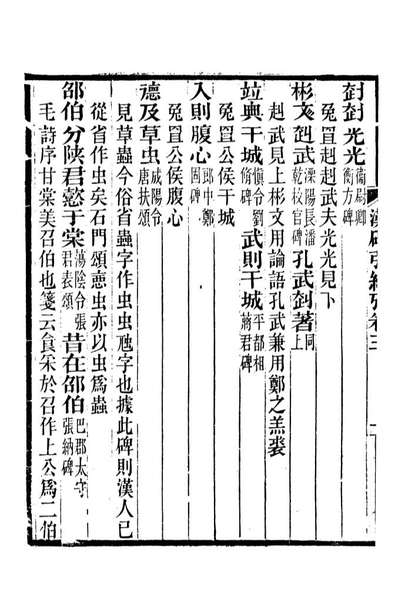 漢碑引經攷卷三
赳赳光光衛尉卿衡方碑
兔罝赳武夫光光見下
彬文赳武溧陽長潘乾校官碑孔武赳著同上
赳武見上彬文用論語孔武兼用鄭之羔裘
竝典干城愼令劉脩碑武則干城平都相蔣君碑
兔罝公侯干城
入則腹心郎中鄭固碑
兔罝公侯腹心
德及草虫咸陽令唐扶頌
見草蟲今俗省蟲字作虫虫虺字也據此碑則漢人已
從省作虫矣石門頌惡虫亦以虫爲蟲
邵伯分陝君懿于棠蕩陰令張君表頌昔在邵伯巴郡太守張納碑
毛詩序甘棠美召伯也箋云食采於召作上公爲二伯